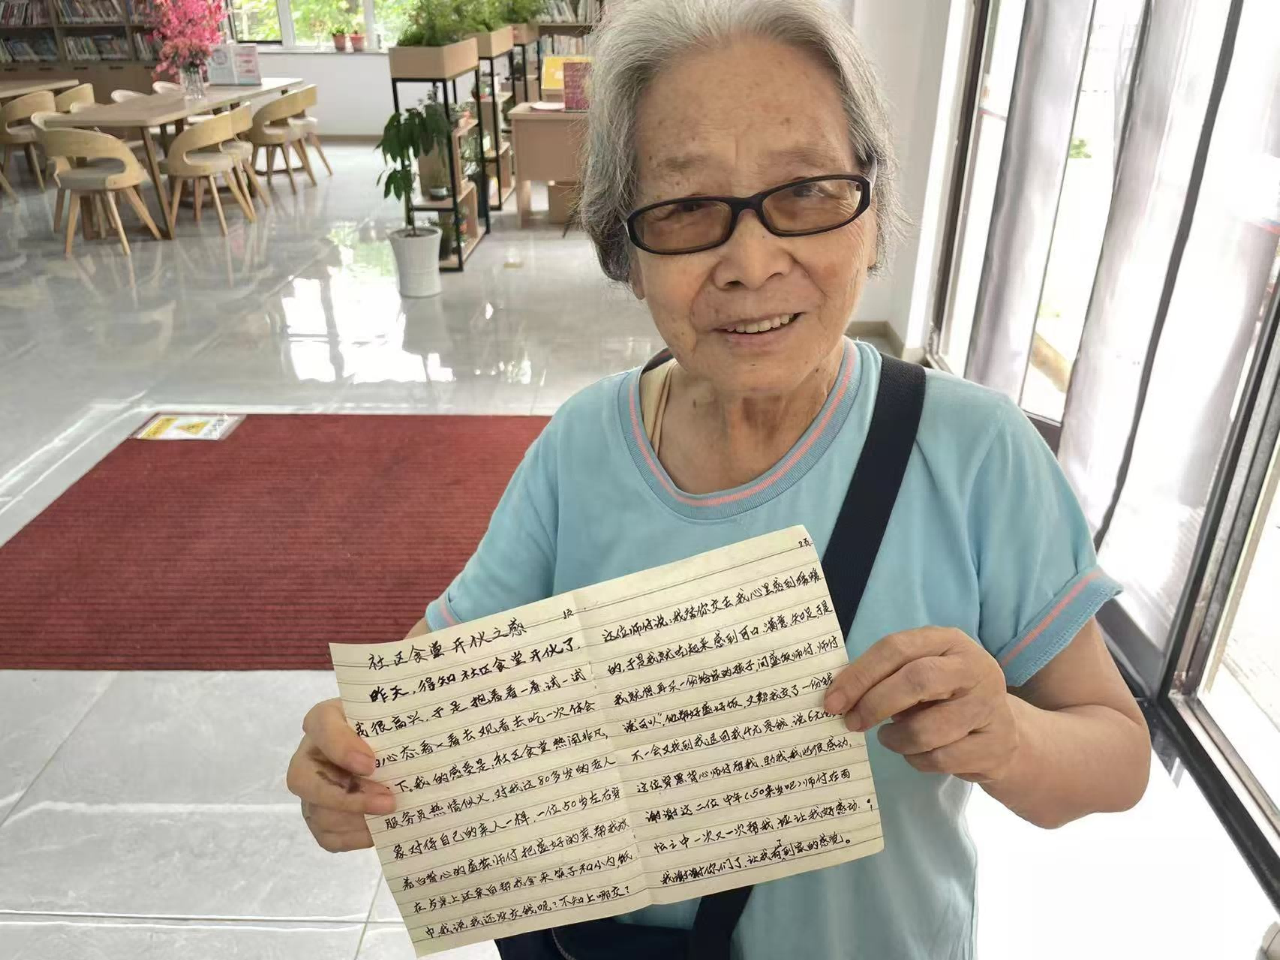 社区食堂开伙之感
昨天,得知社区食堂开伙了,
我很高兴,于是抱着看一看试一试
的心态看一看去观看去吃一次体会
一下,我的感受是,社区食堂热闹非凡,
服务员热情似火,对我这80多岁的老人
象对待自己的亲人一样,一位50岁左右穿
着白背心的盛菜师付把盛好的菜帮我放
在与桌上还亲自帮我拿来筷子和小勺纸
巾,我说我还没交钱呢?不知上哪交?
2页
这位师付说:我替你交去我心里感到暖暖
的,于是我就吃起来感到可口,满意,知足,于是
我就想再买一份给我的孩子问盛饭师付,师付
说可以,他帮好盛好饭,又帮我交了一份钱
不一会又找到我退回我4元零钱,说6元
这位穿黑背心师付帮我,助我,我也很感动,
谢谢这二位中年(50来岁吧)师付在百
忙之中一次又一次帮我,证让我好感动;
我谢谢你们了,让我有到家的感觉。